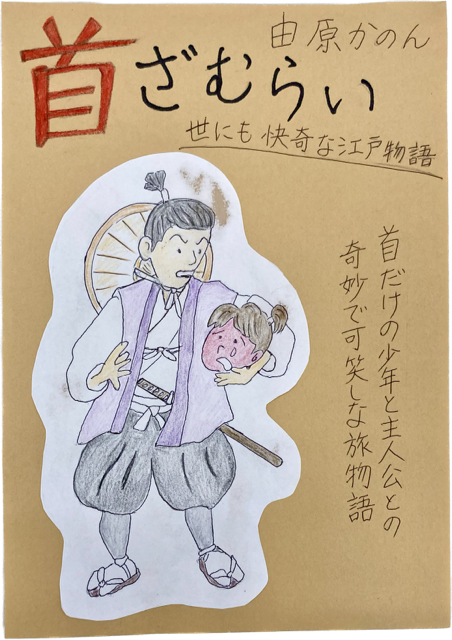 由原かのん
首ざむらい
世にも快奇な江戸物語
首だけの少年と主人公との
奇妙で可笑しな旅物語